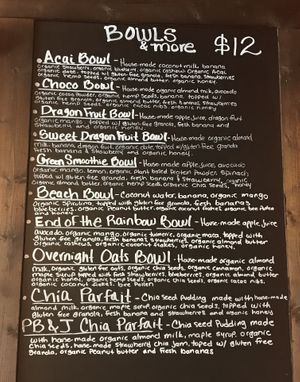 BOWLS
& more $12
Acai Bowl - House-made coconut milk, banana,
organic strawberries, organic blueberries, organic cashews, organic Acai,
organic dates, topped w/ gluten free granola, fresh banana, strawberries
organic hemp seeds, organic almond butter, organic honey.
Choco Bowl - House-made organic almond milk, avocado,
organic cacao powder, organic hemp seeds, banana, topped w/
gluten free granola, organic almond butter, fresh banana, strawberries
organic hemp seeds, organic cacao nibs, organic honey
Dragon Fruit Bowl - House-made apple juice, dragon fruit
organic mango, topped w/ gluten free granola, fresh banana and
strawberries and organic honey.
Sweet Dragon Fruit Bowl - House-made organic almond
milk, banana, dragon fruit, organic date, topped w/ gluten free granola,
fresh banana, strawberries and organic honey.
Green Smoothie Bowl - House-made apple juice, avocado
organic mango, lemon, organic plant based protein powder, spinach
topped w/ gluten free granola, fresh banana & strawberries, organic
almond butter, organic hemp seeds, organic chia seeds, honey
Beach Bowl - Coconut water, banana, organic mango,
organic spirulina, topped with gluten free granola, fresh banana
blueberries, organic peanut butter, organic coconut flakes, organic bee pollen
and honey
End of the Rainbow Bowl - House-made apple juice,
avocado, organic mango, organic turmeric, organic maca, topped with
gluten free granola, fresh banana, strawberries, organic almond butter
organic cashews, organic coconut flakes, organic honey
Overnight Oats Bowl - House-made organic almond
milk, organic gluten free oats, organic chia seeds, organic cinnamon, organic
maple syrup topped with fresh banana, strawberries, blueberries, organic almond butter
organic chia seeds, organic hemp seeds, organic cacao nibs,
organic coconut flakes, bee pollen
Chia Parfait - Chia Seed Pudding made with house-made
almond milk, organic maple syrup, organic chia seeds, topped with
gluten free granola, fresh banana, strawberries and organic honey
PB & J Chia Parfait - Chia Seed Pudding made
with house-made organic almond milk, maple syrup, organic
chia seeds, house made strawberry chia jam, topped w/ gluten free
granola, organic peanut butter and fresh bananas